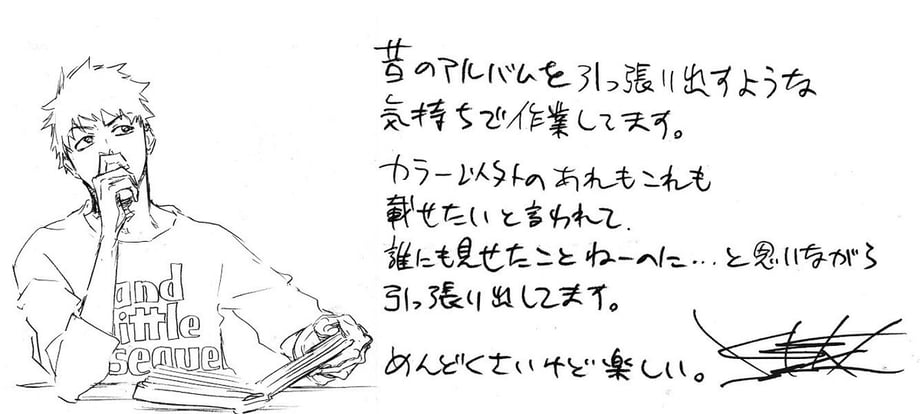 昔のアルバムを引っ張り出すような
気持ちで作業してます。
カラー以外のあれもこれも
載せたいと言われて
誰にも見せたことねーのに…と思いながら
引っ張り出してます。
めんどくさいけど楽しい。
and
little
seque